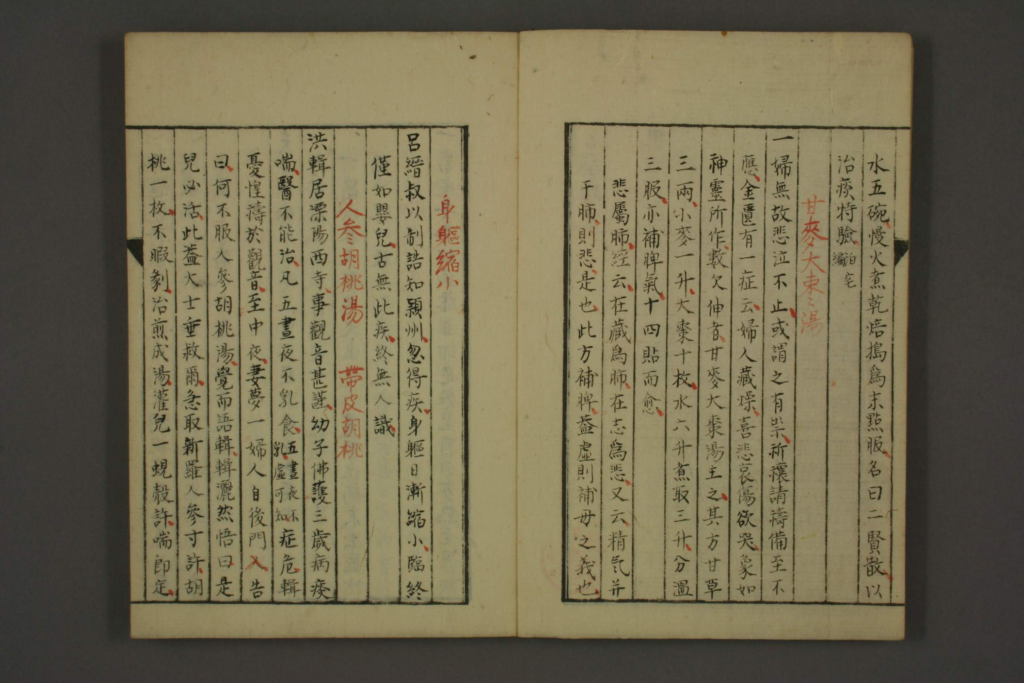 水五碗慢火煮乾焙搗為末點服名曰二賢散以
治痰特驗
甘麥大棗湯
一婦無故悲泣不止或謂之有祟祈禳請禱備至不
應金匱有一症云婦人藏燥喜悲哀傷欲哭象如
神靈所作數欠伸者甘麥大棗湯主之其方甘草
三兩小麥一升大棗十枚水六升煮取三升分溫
三服亦補脾氣十四貼而愈
悲屬肺經云在藏為肺在志為悲又云精氣并
于肺則悲是也此方補脾益虛則補母之義也
身軀縮小
呂縉叔以制誥知潁州忽得疾身軀日漸縮小臨終
僅如嬰兒古無此疾終無人識
人參胡桃湯 帶皮胡桃
洪輯居溧陽西寺事觀音甚謹幼子佛護三歲病痰
喘醫不能治凡五晝夜不乳食五晝夜不乳虛可知症危輯
憂惶禱於觀音至中夜妻夢一婦人自後門入告
曰何不服人參胡桃湯覺而語輯輯灑然悟曰是
兒必活此蓋大士垂救爾急取新羅人參寸許胡
桃一枚不暇剝治煎成湯灌兒一蜆殼許喘即定